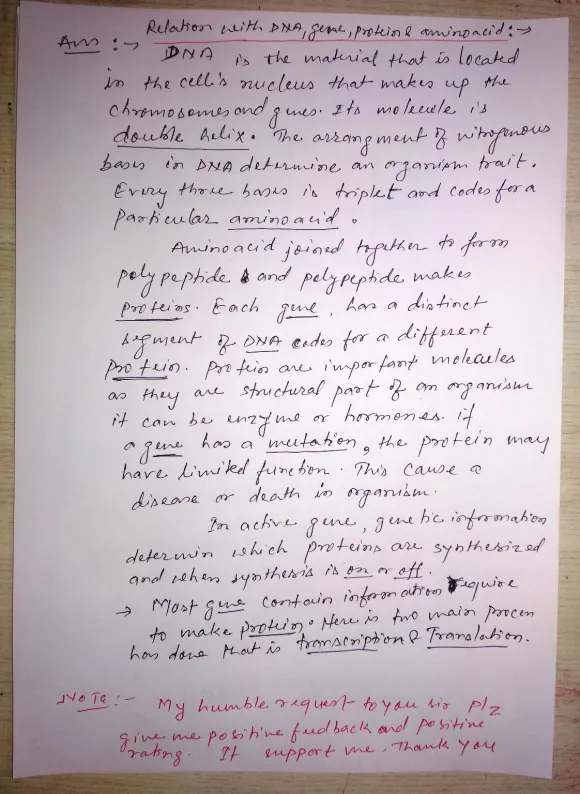 Relation with DNA, gene, protein & aminoacid :→
Ans :→ DNA is the material that is located
in the cell's nucleus that makes up the
chromosomes and genes. Its molecule is
double helix. The arrangment of nitrogenous
bases in DNA determine an organism trait.
Every three bases is triplet and codes for a
Particular aminoacid.
Aminoacid joined together to form
polypeptide & and polypeptide makes
proteins. Each gene, has a distinct
segment of DNA codes for a different
protein. protein are important molecules
as they are structural part of an organism
it can be enzyme or hormones. if
a gene has a mutation, the protein may
have limited function. This cause a
disease or death in organism.
In active gene, genetic information
determin which proteins are synthesized
and when synthesis is on or off.
→ Most gene contain information require
to make protein. Here is two main process
has done that is transcription & Translation.
NOTE :- My humble request to you sir plz
give me positive feedback and positive
rating. It support me. Thank you